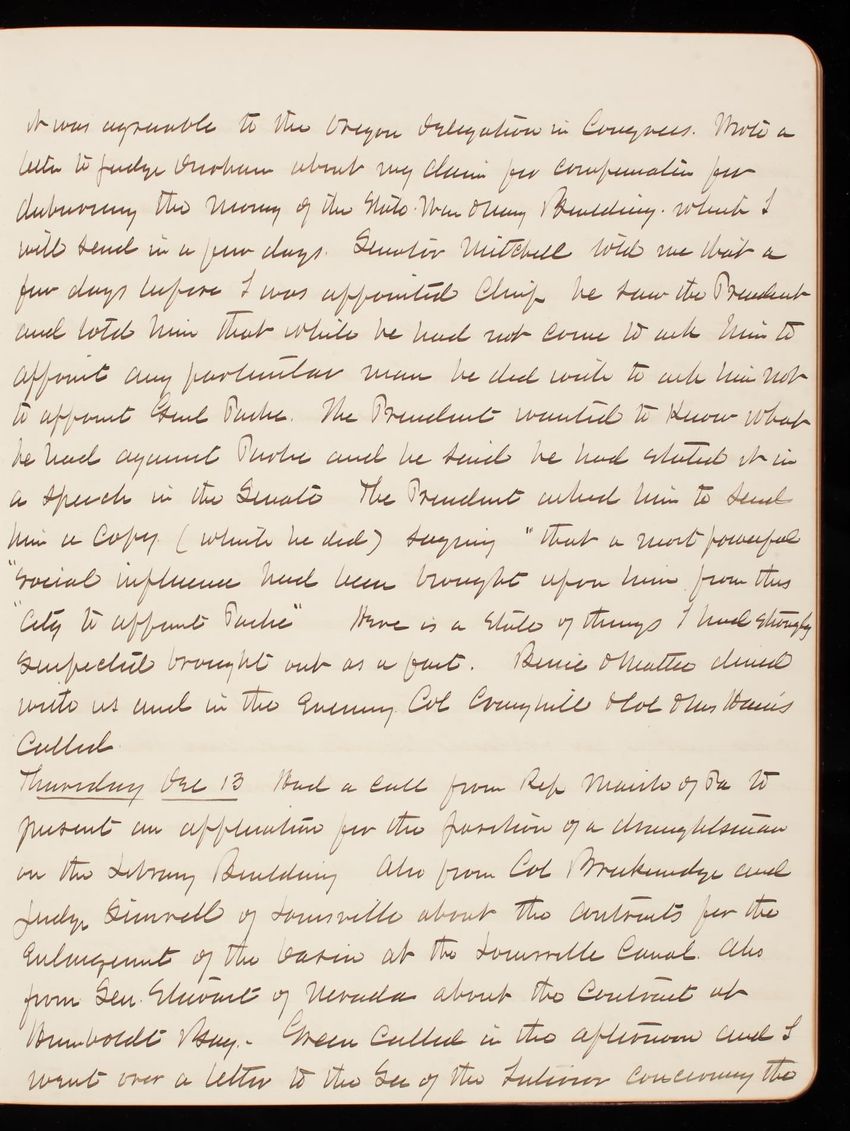 it was agreeable to the Oregon delegation in Congress. Wrote a
letter to Judge Durham about my claim for compensation for
disbursing the Money of the State War & Navy Building. which I
will send in a few days. Senator Mitchell told me that a
few days before I was appointed Chief he saw the President
and told him that while he had not come to ask him to
appoint any particular man he did wish to ask him not
to appoint Genl Parke. The President wanted to know what
he had against Parke and he said he had stated it in
a speech in the Senate The President asked him to send
him a copy (which he did) saying "that a most powerful
"social influence had been brought upon him from this
"City to appoint Parke" Here is a state of things I had strongly
suspected brought out as a fact. Bessie & Mattie dined
with us and in the Evening Col Craighill & Col & Mrs Hains
Called.
Thursday Dec 13 Had a call from Rep of Pa to
present an application for the position of a draughtsman
on the Library Building Also from Col Breckinridge and
Judge of Louisville about the contracts for the
Enlargement of the basin at the Louisville Canal. Also
from Sen. Stewart of Nevada about the Contract at
Humboldt Bay.- Green called in the afternoon and I
went over a letter to the Sec of the Interior concerning the